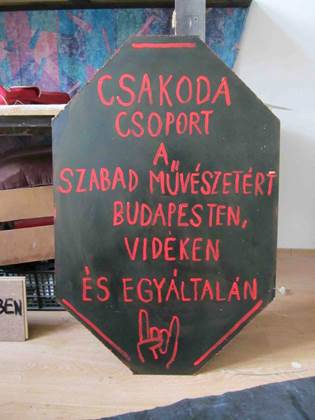 CSAKODA
CSOPORT
A
SZABAD MŰVÉSZETÉRT
BUDAPESTEN,
VIDÉKEN
ÉS EGYÁLTALÁN
BEN